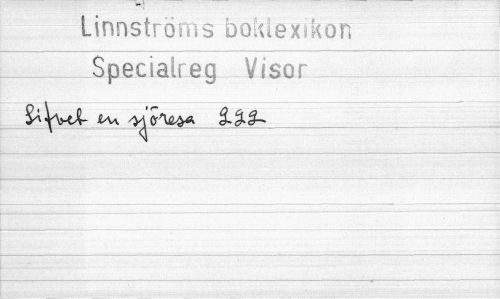 Linnströms boklexikon
Specialreg Visor
Lifvet en sjöresa 222